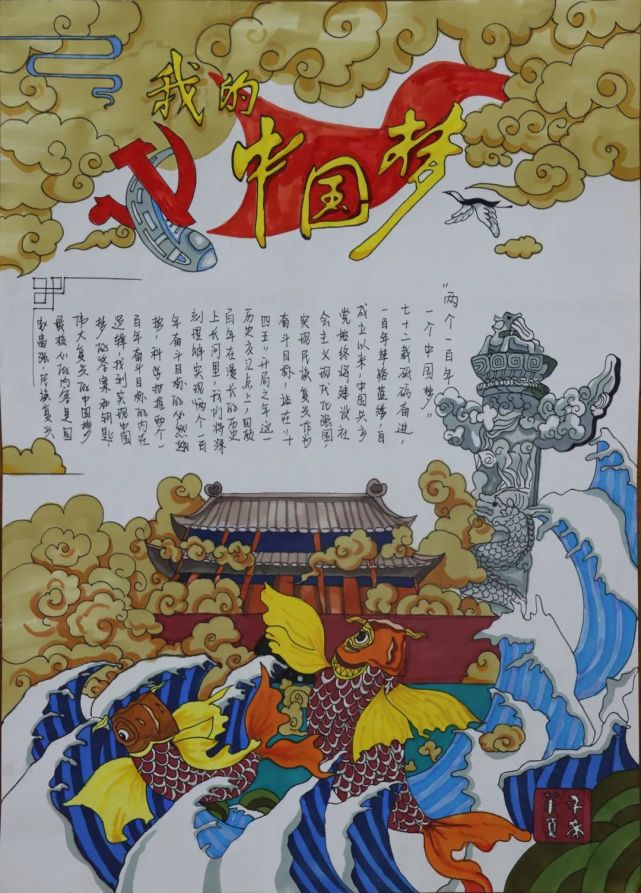 我的
中国梦
“两个一百年，
一个中国梦。”
七十二载砥砺奋进，
一百年筚路蓝缕，自
成立以来，中国共产
党始终将建设社
会主义现代化强国，
实现民族复兴作为
奋斗目标，站在“十
四五”开局之年这一
历史交汇点上，回顾
百年在漫长的历史
上长河里，我们将深
刻理解实现“两个一百
年奋斗目标的必然趋
势，科学把握两个一
百年奋斗目标的内在
逻辑，找到实现中国
梦的答案和钥匙。
伟大复兴的中国梦
最核心的内容是国
家富强，民族复兴